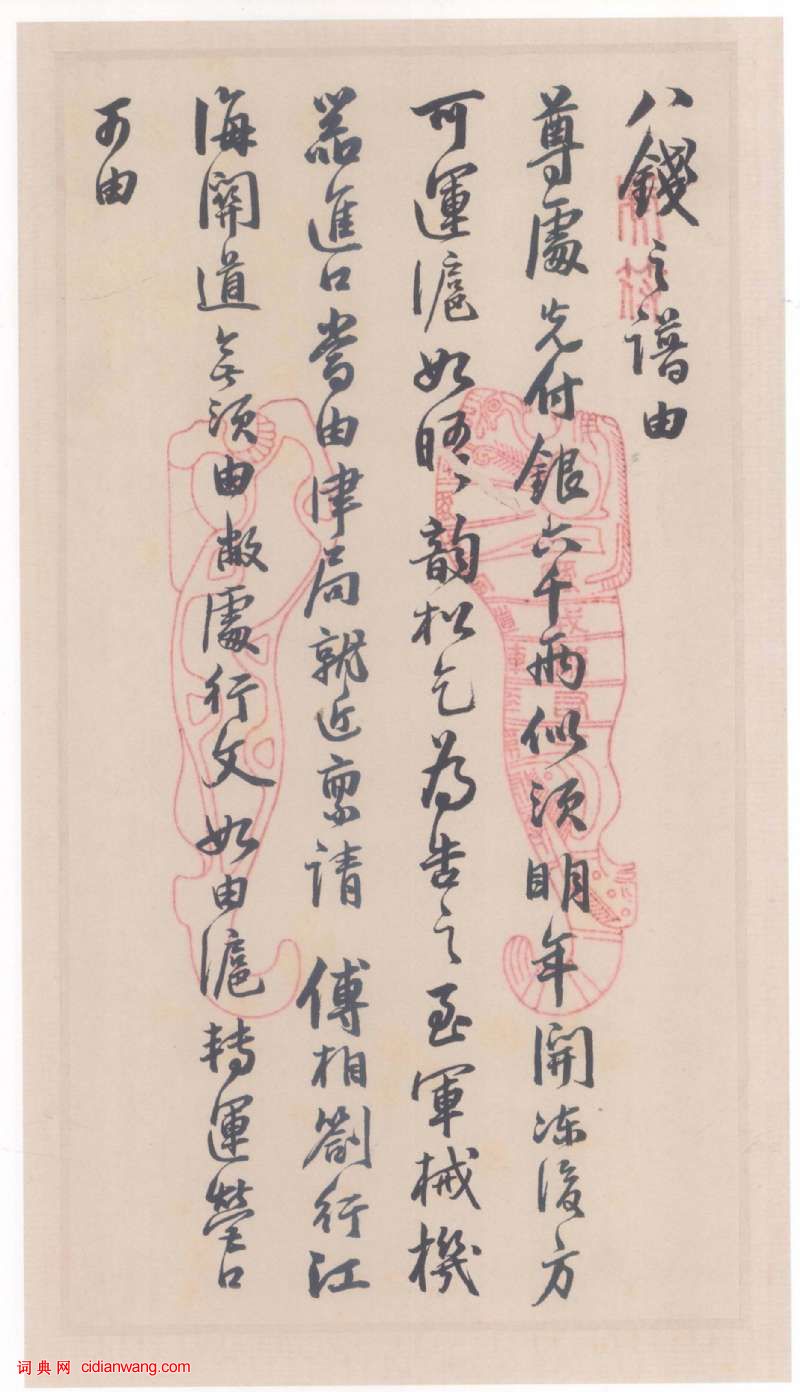 八錢之譜由
尊處先付銀六千兩似須明年開凍後方
可運滬如晤韻松乞為告之至軍械機
器進口當由津局就近稟請 傅相劄行江
海關道無須由敝處行文如由滬轉運營口
可由
词典网 cidianwang.com